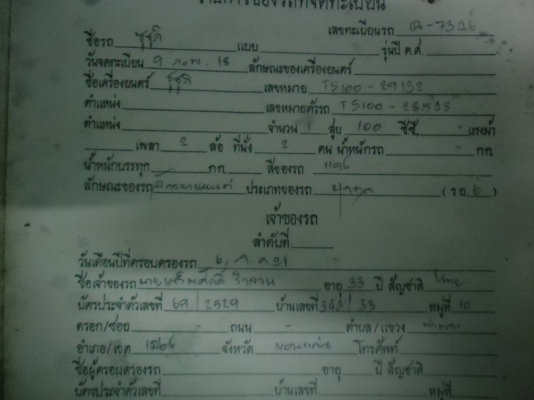 รายการของรถที่จดทะเบียน
เลขทะเบียนรถ
ชื่อรถ ซูซูกิ แบบ รุ่นปี ค.ศ.
วันจดทะเบียน 9 18 ลักษณะของเครื่องยนต์
ชื่อเครื่องยนต์ ซูซูกิ เลขหมาย TS100 - 29132
ตำแหน่ง เลขหมายตัวรถ TS100 -
ตำแหน่ง จำนวน 1 สูบ 100 ซีซี. แรงม้า
เพลา 2 ล้อ ที่นั่ง 2 คน น้ำหนักรถ กก.
น้ำหนักบรรทุก กก. สีของรถ แดง
ลักษณะของรถ จักรยานยนต์ ประเภทของรถ (รย 6)
เจ้าของรถ
ลำดับที่
วันเดือนปีที่ครอบครองรถ
ชื่อเจ้าของรถ อายุ 33 ปี สัญชาติ ไทย
บัตรประจำตัวเลขที่ 69 / 2529 บ้านเลขที่ 343 / 33 หมู่ที่ 10
ตรอก/ซอย - ถนน - ตำบล/แขวง
อำเภอ/เขต เมือง จังหวัด ขอนแก่น โทรศัพท์
ชื่อผู้ครอบครองรถ อายุ ปี สัญชาติ
บัตรประจำตัวเลขที่ บ้านเลขที่ หมู่ที่